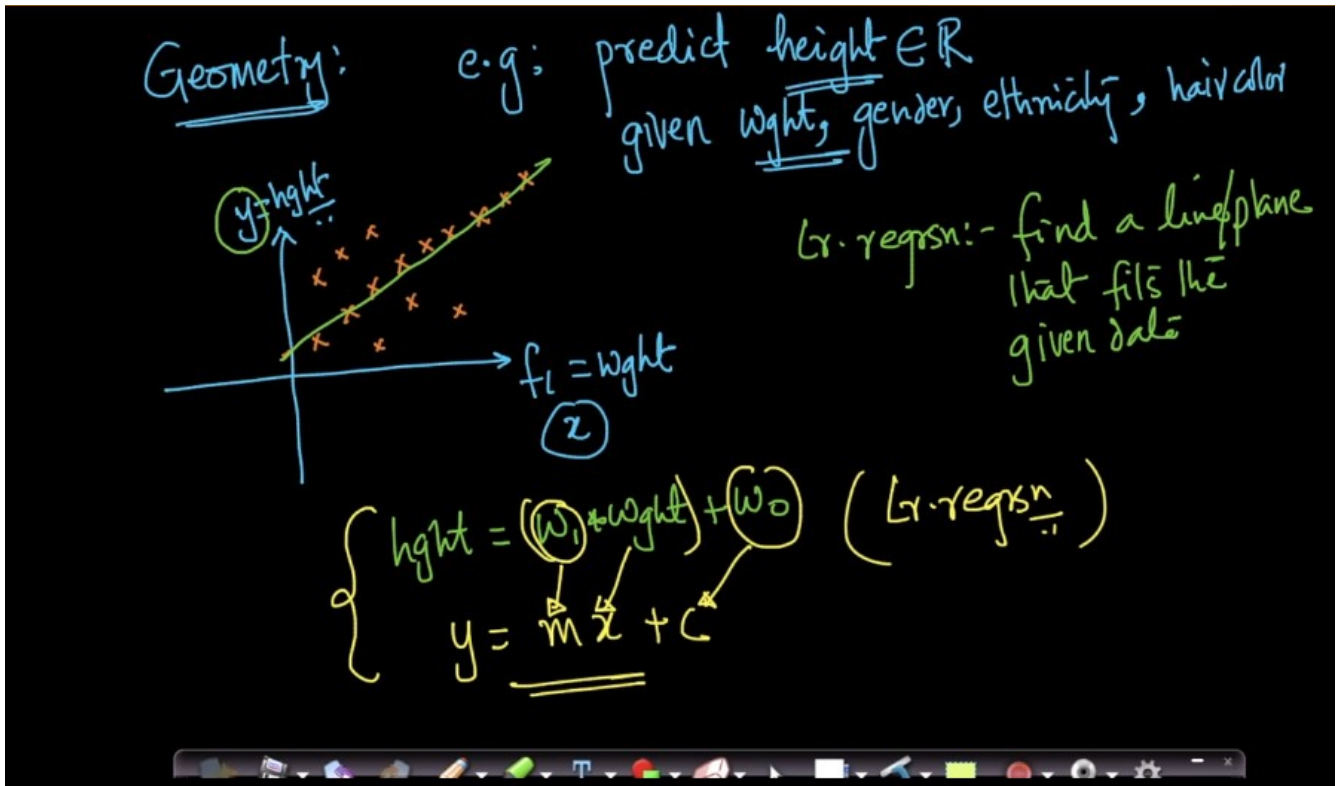 Geometry: e.g; predict height ∈ ℝ
given wght, gender, ethnicity, hair color
y=hght
Lr. regrsn:- find a line/plane
that fits the
given data
f1 = wght
x
hght = (w1 * wght) + w0 (Lr. regrsn)
y = mx + c
T